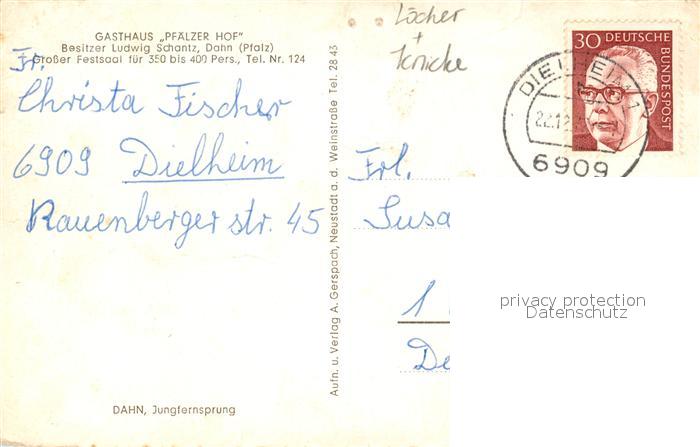 GASTHAUS „PFÄLZER HOF"
Besitzer Ludwig Schantz, Dahn (Pfalz)
Großer Festsaal für 350 bis 400 Pers., Tel. Nr. 124
Fr.
Christa Fischer
6909 Dielheim
Rauenberger str. 45
DAHN, Jungfernsprung
Aufn. u. Verlag A. Gerspach, Neustadt a. d. Weinstraße Tel. 28 43
Löcher
+
Knicke
30 DEUTSCHE
BUNDESPOST
DIELHEIM 1
22.12.
6909
Frl.
Susa
1
De
privacy protection
Datenschutz